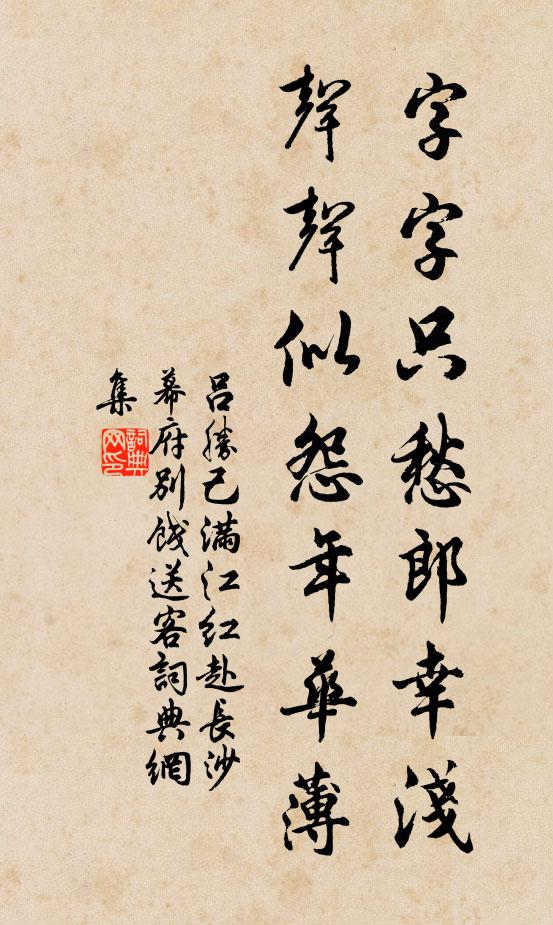 字字只愁郎幸淺
聲聲似怨年華薄
呂勝己滿江紅赴長沙
幕府別餞送客詞典網
集
詞典
网印